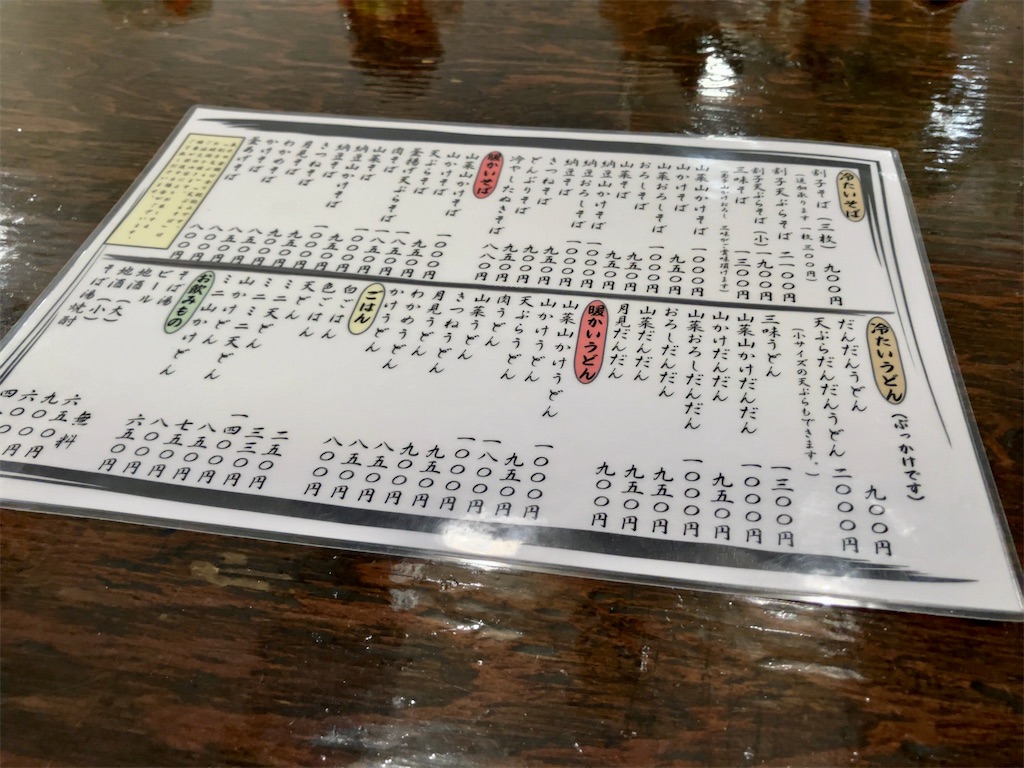 冷たいそば
割子そば(三枚) 九〇〇円
(追加承ります一枚 三〇〇円)
割子天ぷらそば 二一〇〇円
割子天ぷらそば(小) 一九〇〇円
三味そば 一三〇〇円
(山菜山かけおろし 三味がご賞味頂けます)
山菜山かけそば 一〇〇〇円
山かけそば 九五〇円
山菜おろしそば 一〇〇〇円
おろしそば 九五〇円
山菜そば 九五〇円
納豆山かけそば 一〇〇〇円
納豆おろしそば 一〇〇〇円
納豆そば
きつねそば
どんぶりそば
冷やしたぬきそば
暖かいそば
山菜山かけそば 一〇〇〇円
山かけそば 九五〇円
天ぷらそば 一八〇〇円
釜揚げ天ぷらそば
肉そば
山菜そば
納豆山かけそば
納豆そば
きつねそば
月見そば
わかめそば
かけそば
釜あげそば
冷たいうどん (ぶっかけです)
だんだんうどん 九〇〇円
天ぷらだんだんうどん 二〇〇〇円
(小サイズの天ぷらもできます。)
三味うどん 一三〇〇円
山菜山かけだんだん 一〇〇〇円
山かけだんだん 九五〇円
山菜おろしだんだん 一〇〇〇円
おろしだんだん 九五〇円
山菜だんだん 九五〇円
月見だんだん 九〇〇円
暖かいうどん
山菜山かけうどん 一〇〇〇円
山かけうどん 九五〇円
天ぷらうどん 一八〇〇円
肉うどん 一〇〇〇円
山菜うどん 九五〇円
きつねうどん 九〇〇円
月見うどん 八五〇円
わかめうどん 八五〇円
かけうどん 八〇〇円
ごはん
白ごはん 二五〇円
色ごはん 三三〇円
天どん 一四〇〇円
ミニ天どん 八五〇円
ミニミニ天どん 七五〇円
山かけどん 八〇〇円
ミニ山かけどん 六五〇円
お飲みもの
そば湯 無料
ビール 六五〇円
地酒(大) 九〇〇円
地酒(小) 六〇〇円
そば湯焼酎 四〇〇円